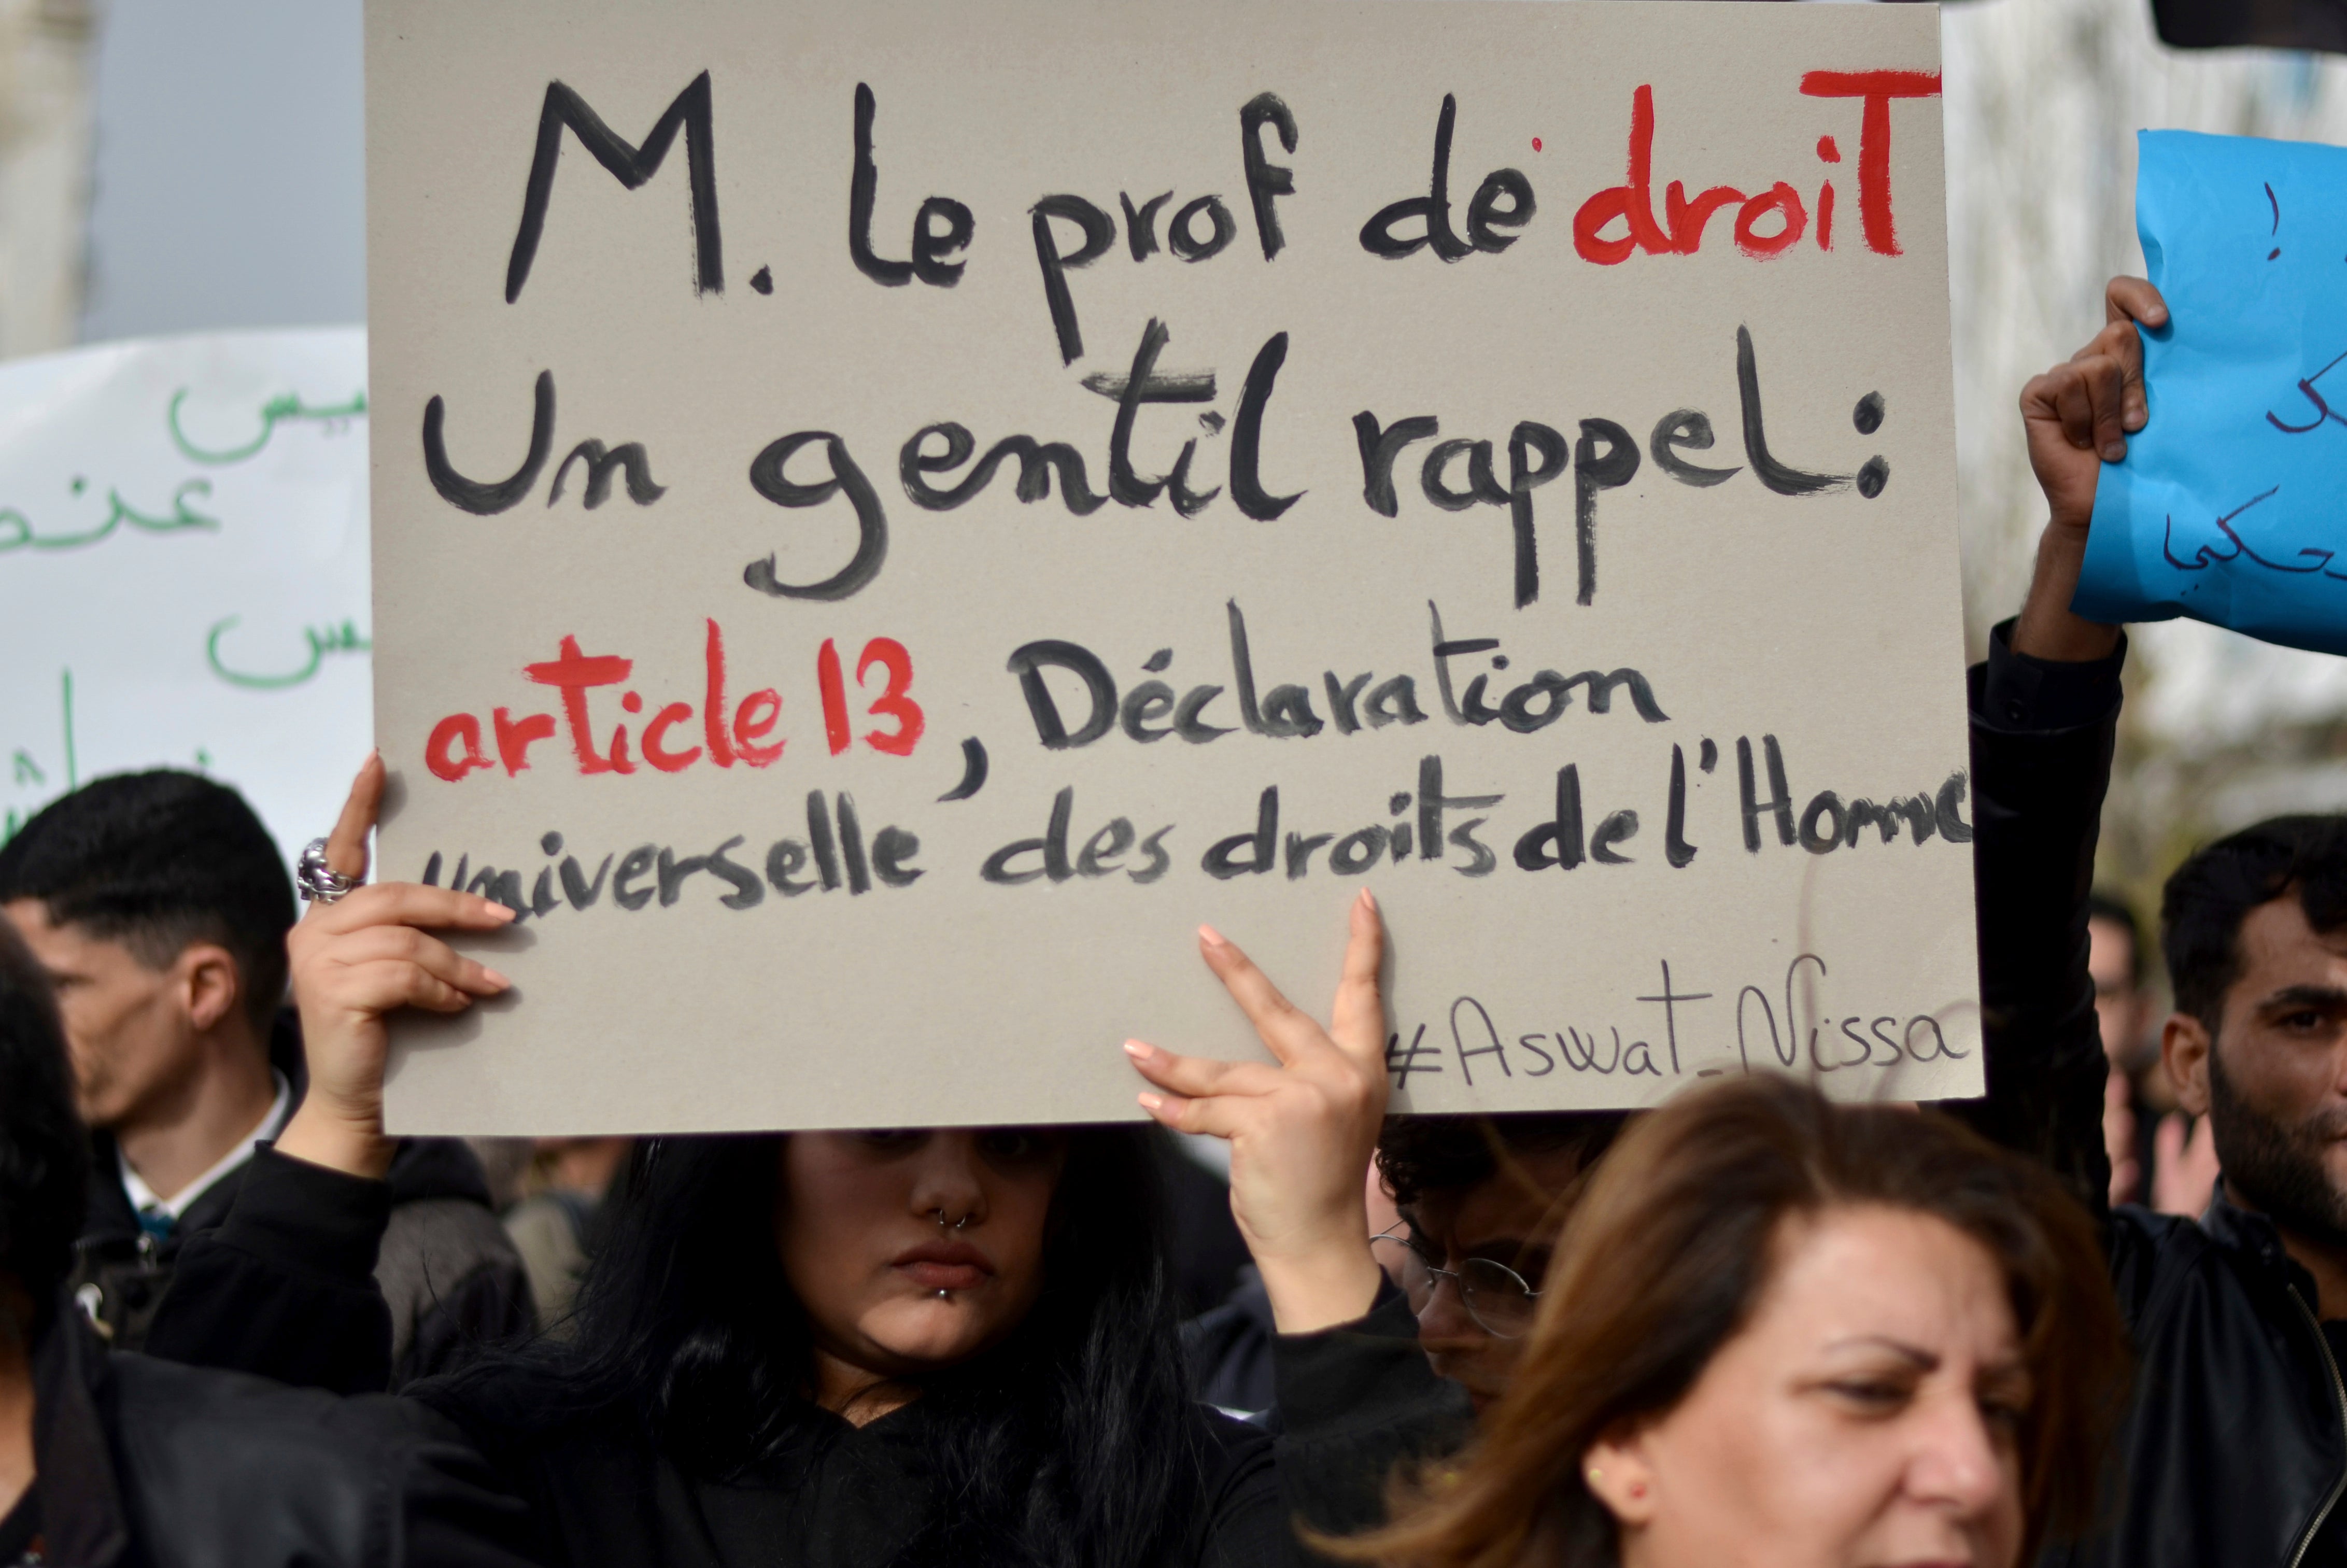 M. Le prof de droit
Un gentil rappel:
article 13, Déclaration
universelle des droits de l'Homme
#Aswat_Nissa